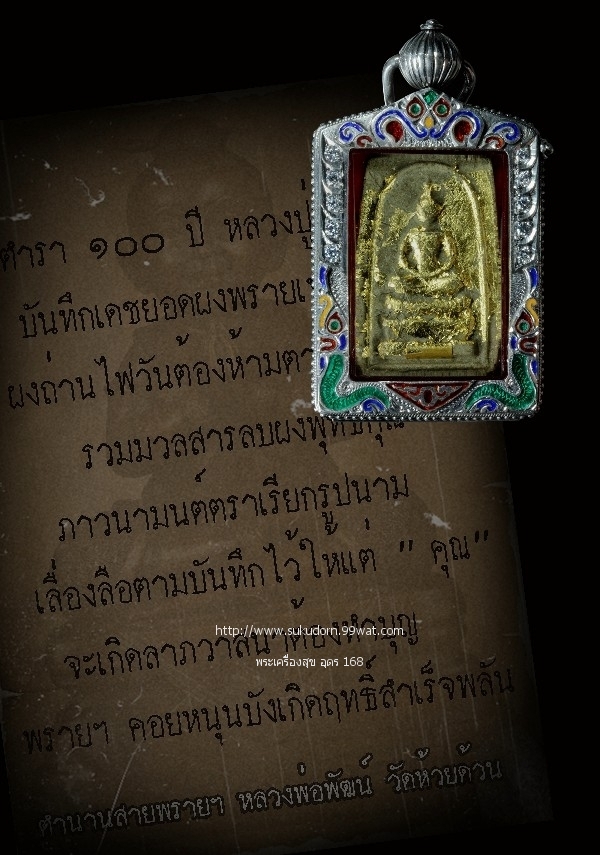 ตำรา ๑๐๐ ปี หลวงปู่
บันทึกเดชยอดผงพราย
ผงถ่านไฟวันต้องห้าม
รวมมวลสารลบผงพุทธคุณ
ภาวนามนต์ตราเรียกรูปนาม
เลื่องลือตามบันทึกไว้ให้แต่ " คุณ"
http://www.sukudorn.99wat.com.
จะเกิดลาภวาสนาต้องทำบุญ
พระเครื่องสุข อุดร 168
พรายฯ คอยหนุนบังเกิดฤทธิ์สำเร็จพลัน
ตำนานสายพรายฯ หลวงพ่อพัฒน์ วัดห้วยด้วน